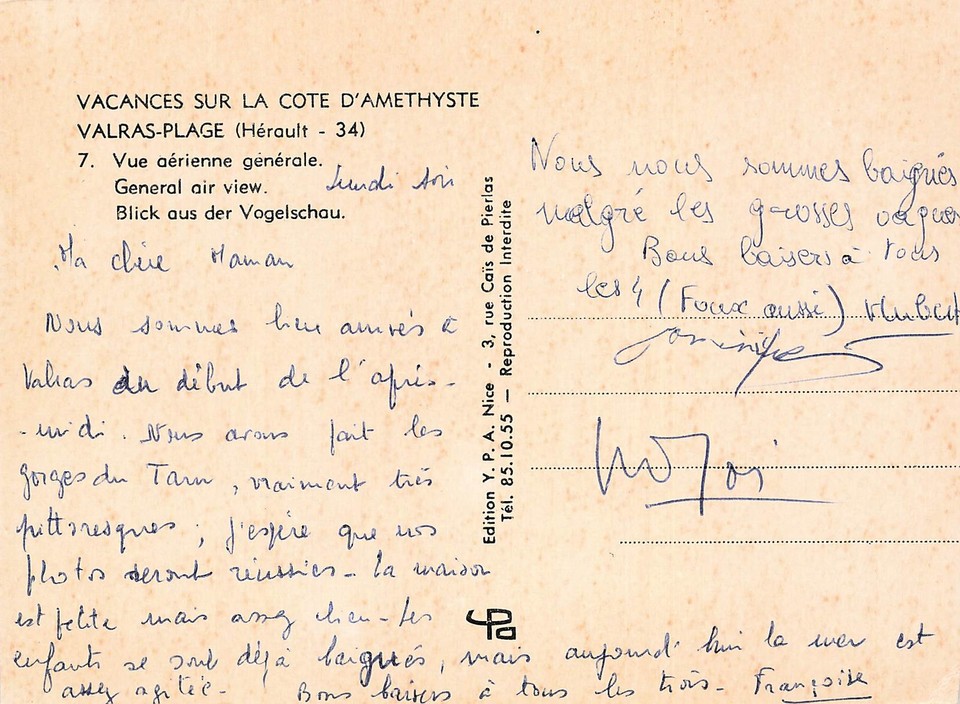 VACANCES SUR LA COTE D'AMETHYSTE
VALRAS-PLAGE (Hérault - 34)
7. Vue aérienne générale.
General air view.
Blick aus der Vogelschau.
Lundi soir
Ma chère Maman
Nous sommes bien arrivés à
Valras au début de l'après-
-midi. Nous avons fait les
gorges du Tarn, vraiment très
pittoresques ; j'espère que nos
photos seront réussies - La maison
est petite mais assez bien - Les
enfants se sont déjà baignés, mais aujourd'hui la mer est
assez agitée - Bons baisers à tous les trois - Françoise
Edition Y. P. A. Nice - 3, rue Caïs de Pierlas
Tél. 85.10.55 — Reproduction Interdite
YPa
Nous nous sommes baignés
malgré les grosses vagues
Bons baisers à tous
les 4 (Foux aussi) Hubert
Dominique